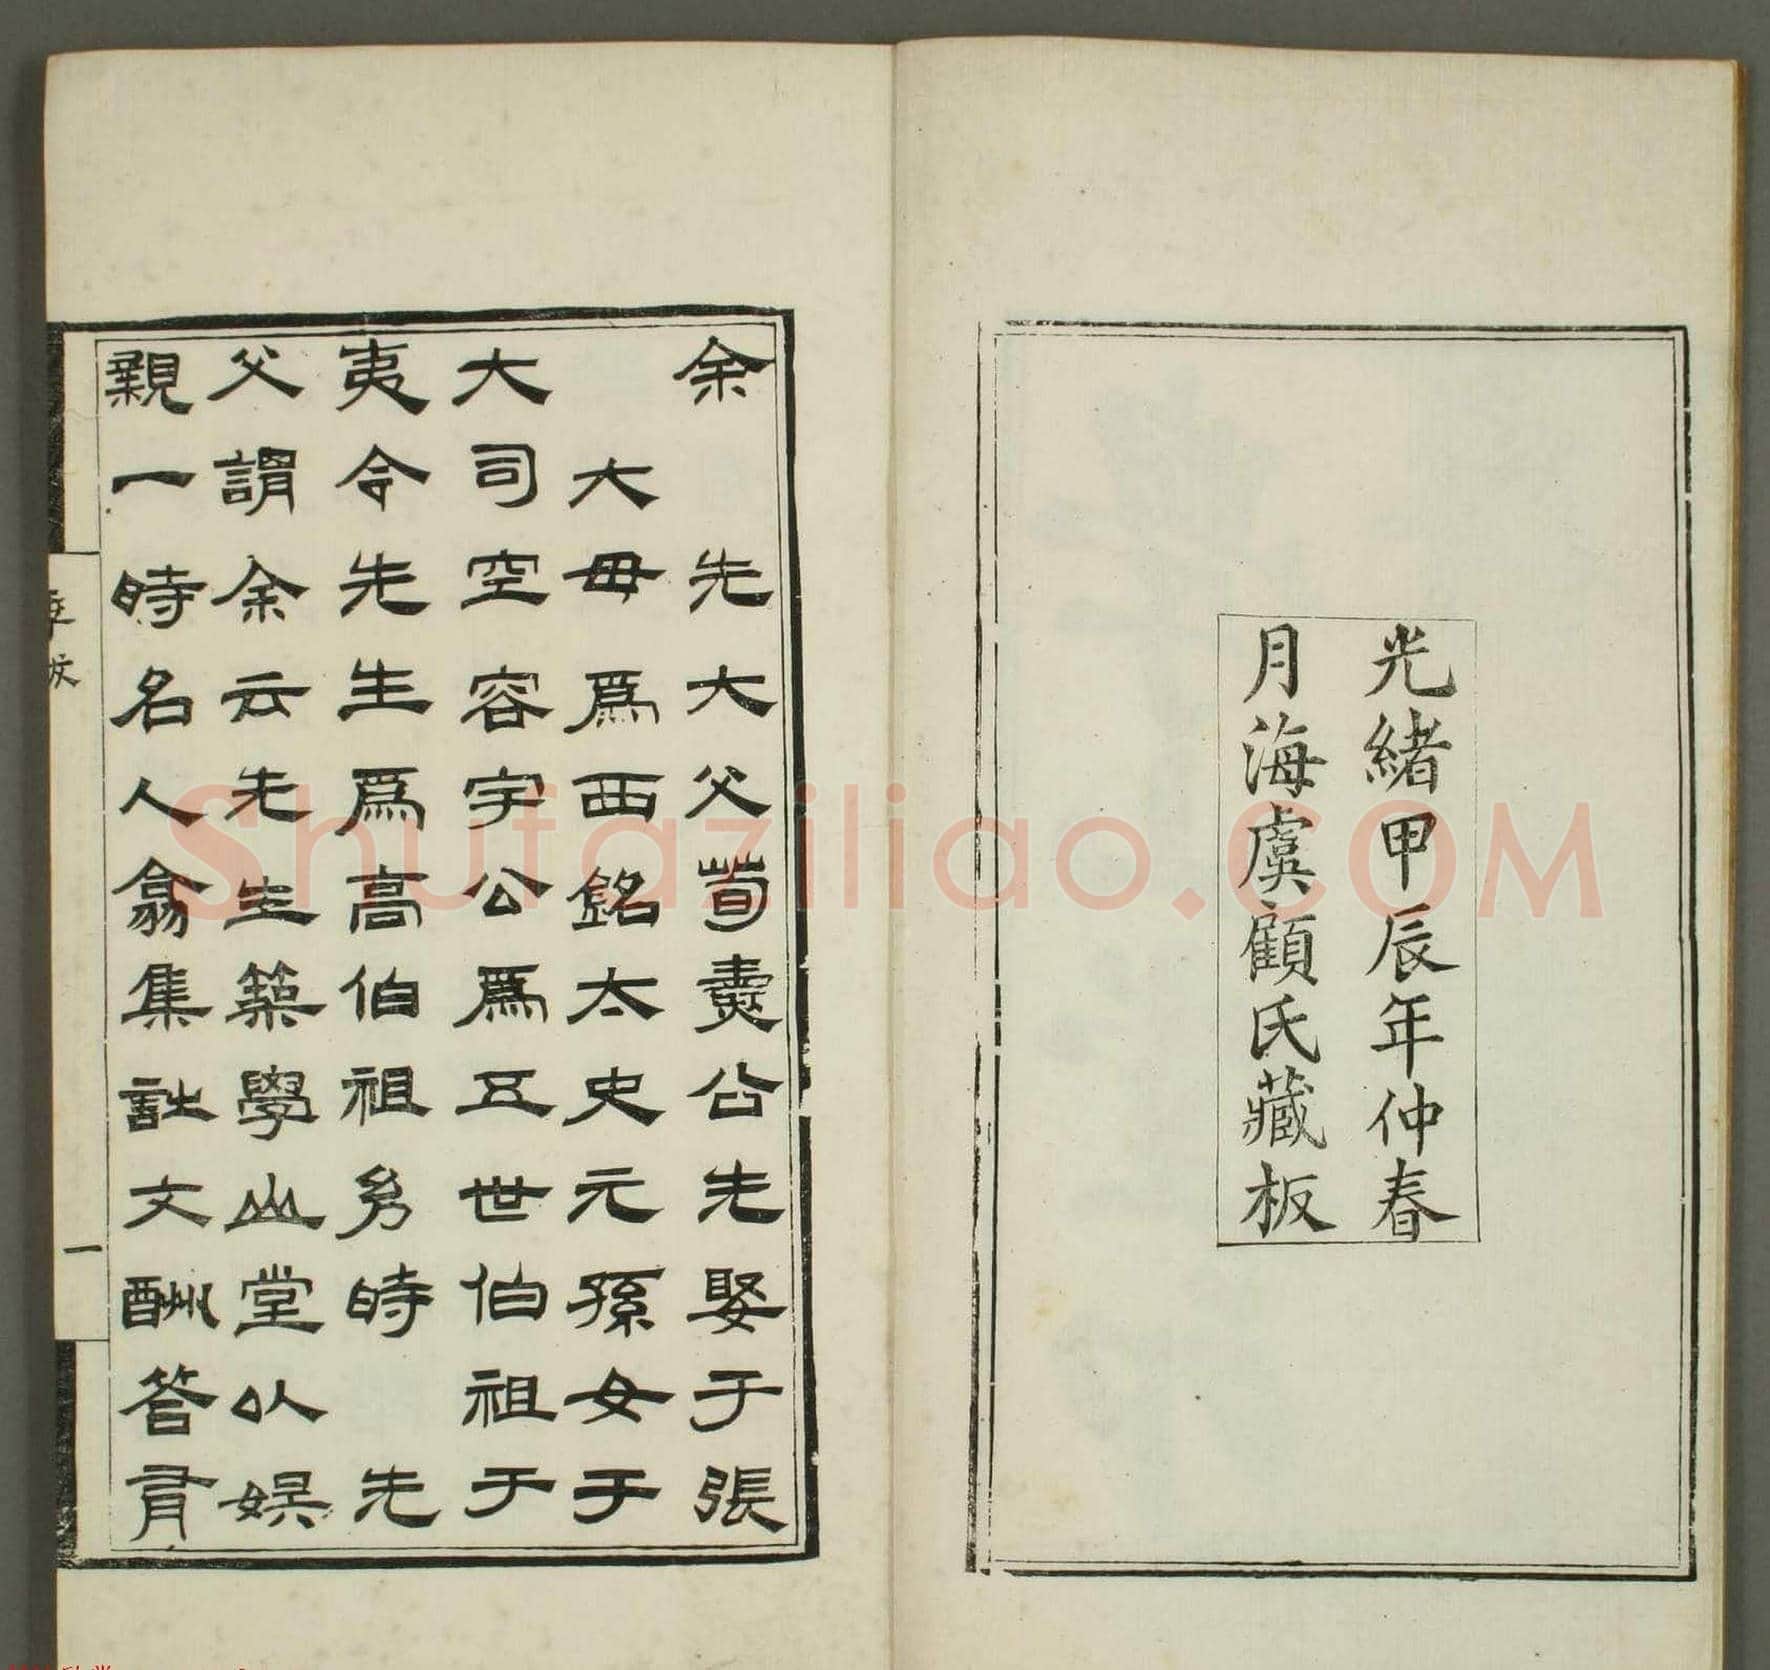 光緒甲辰年仲春
月海虞顧氏藏板
余 先大父公先娶于張
大母爲西銘太史元孫女于
大司空容宇公爲五世伯祖于
夷令先生爲高伯祖幼時 先
父謂余云先生築學山堂以娛
親一時名人翕集詩文酬答有
一
Shufaziliao.COM